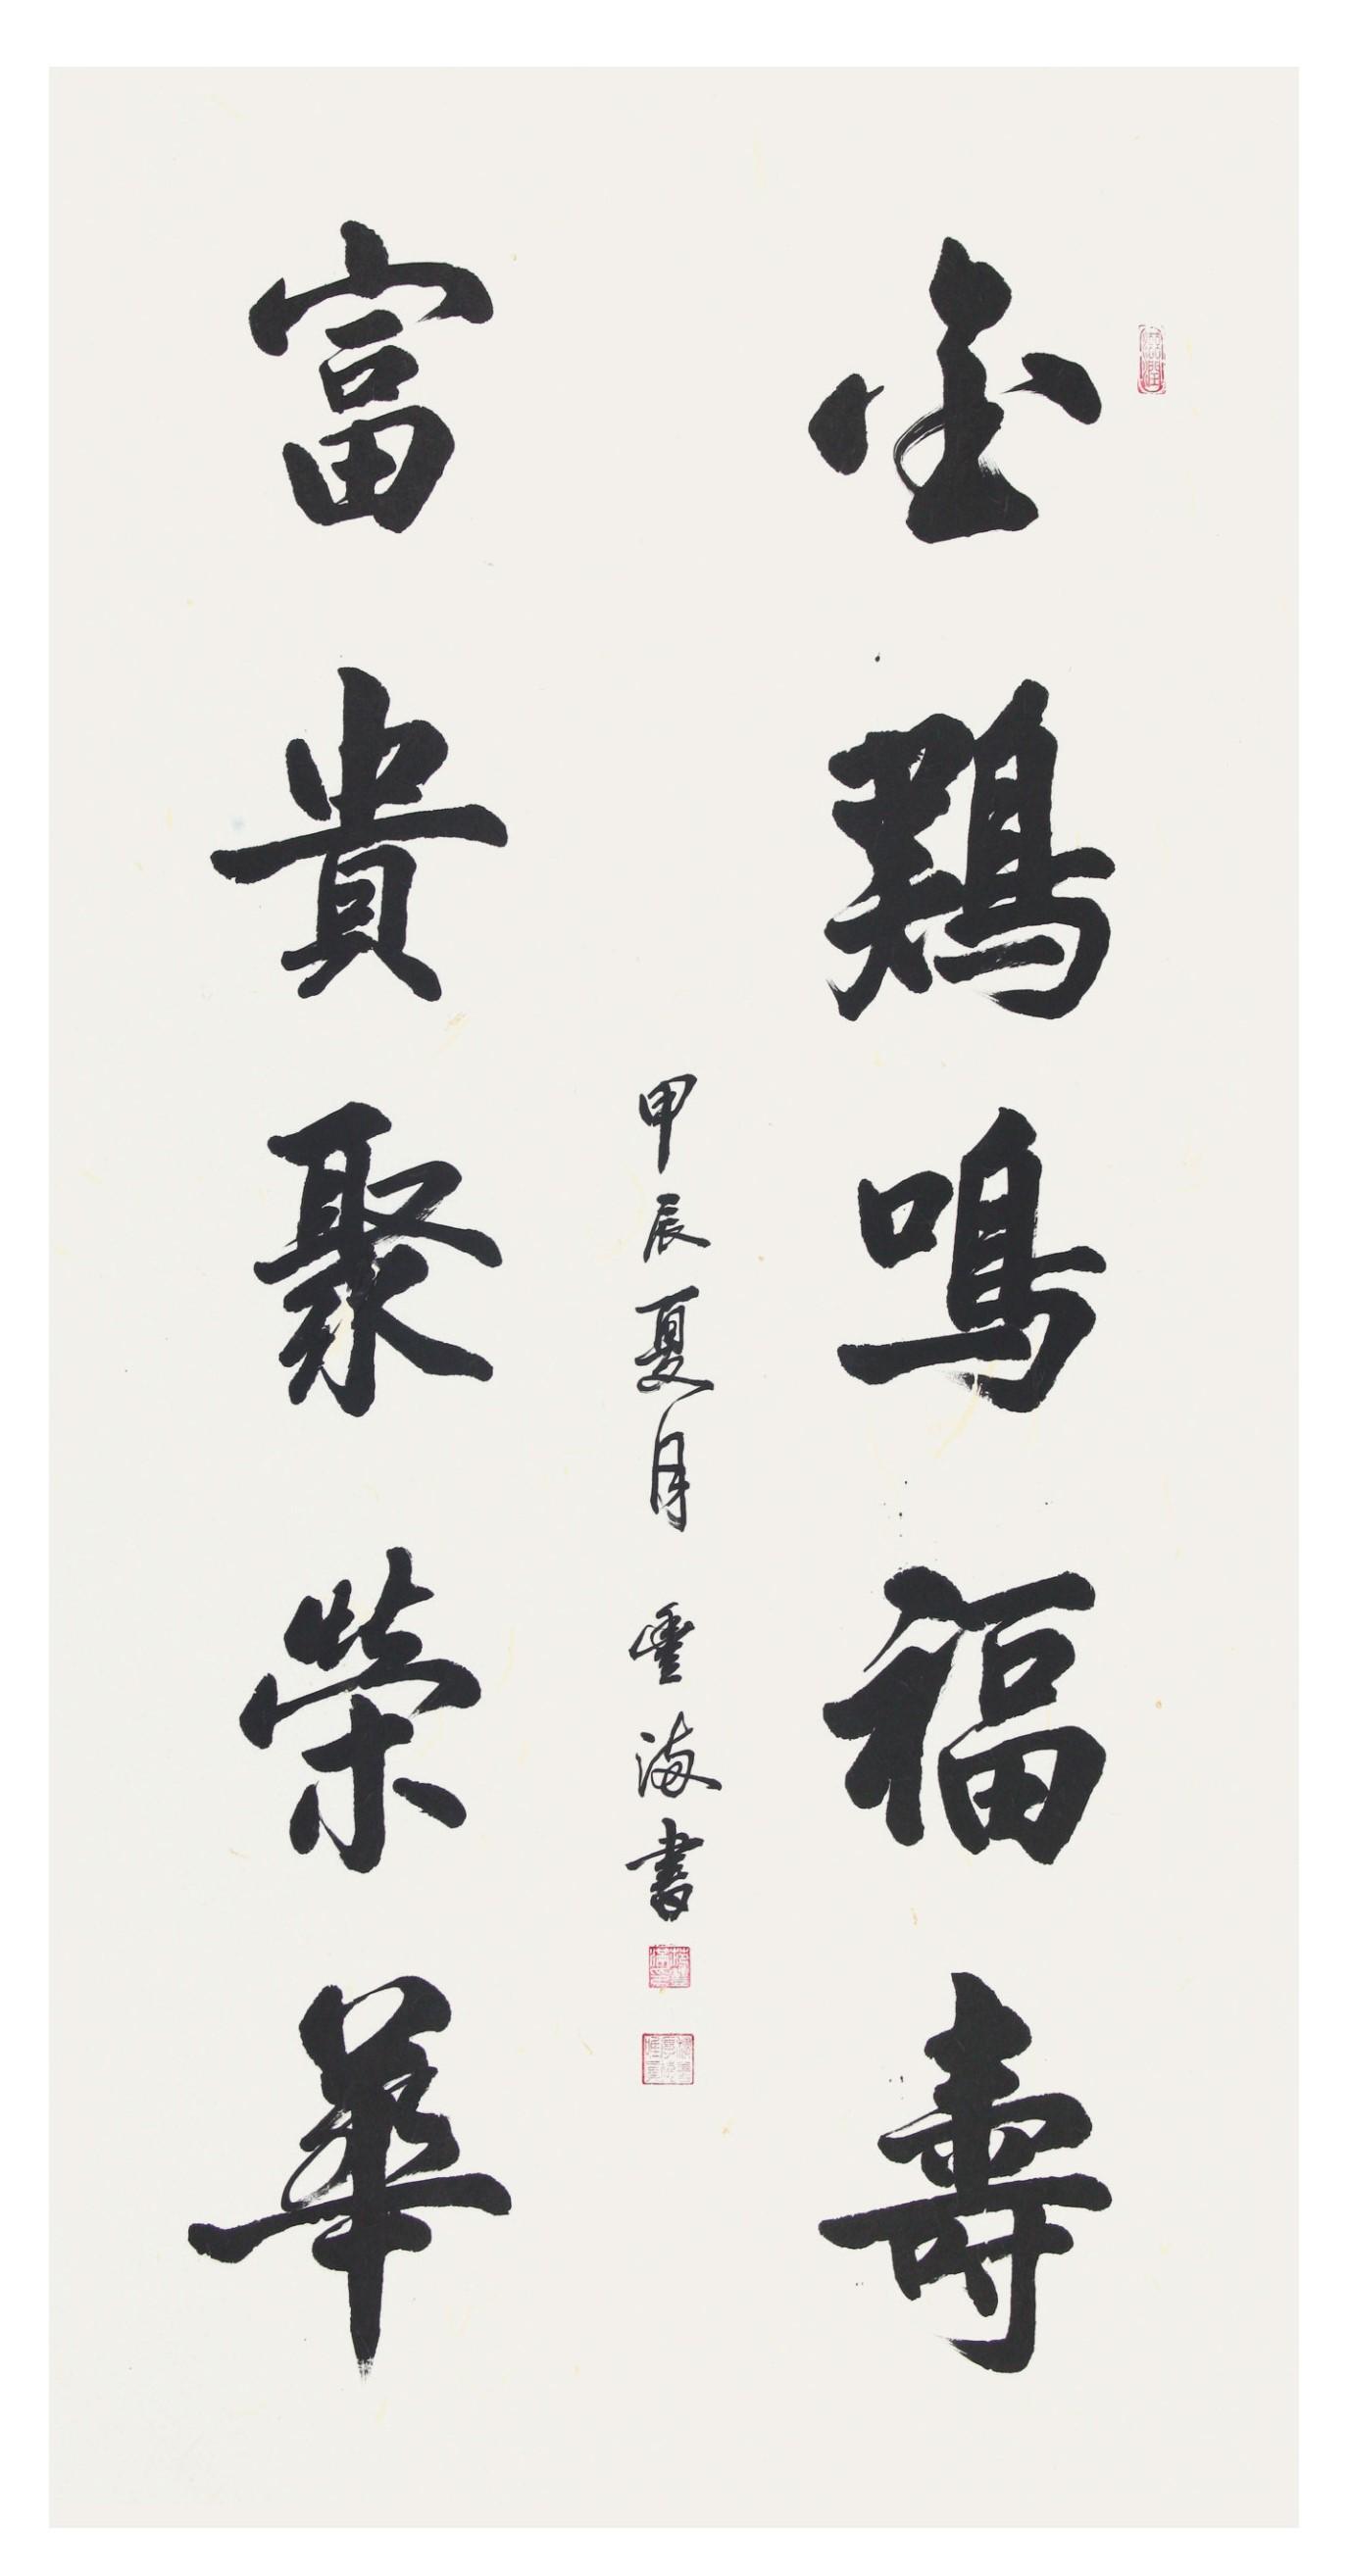 金鷄鳴福壽
富貴聚榮華
甲辰夏月 雲海書